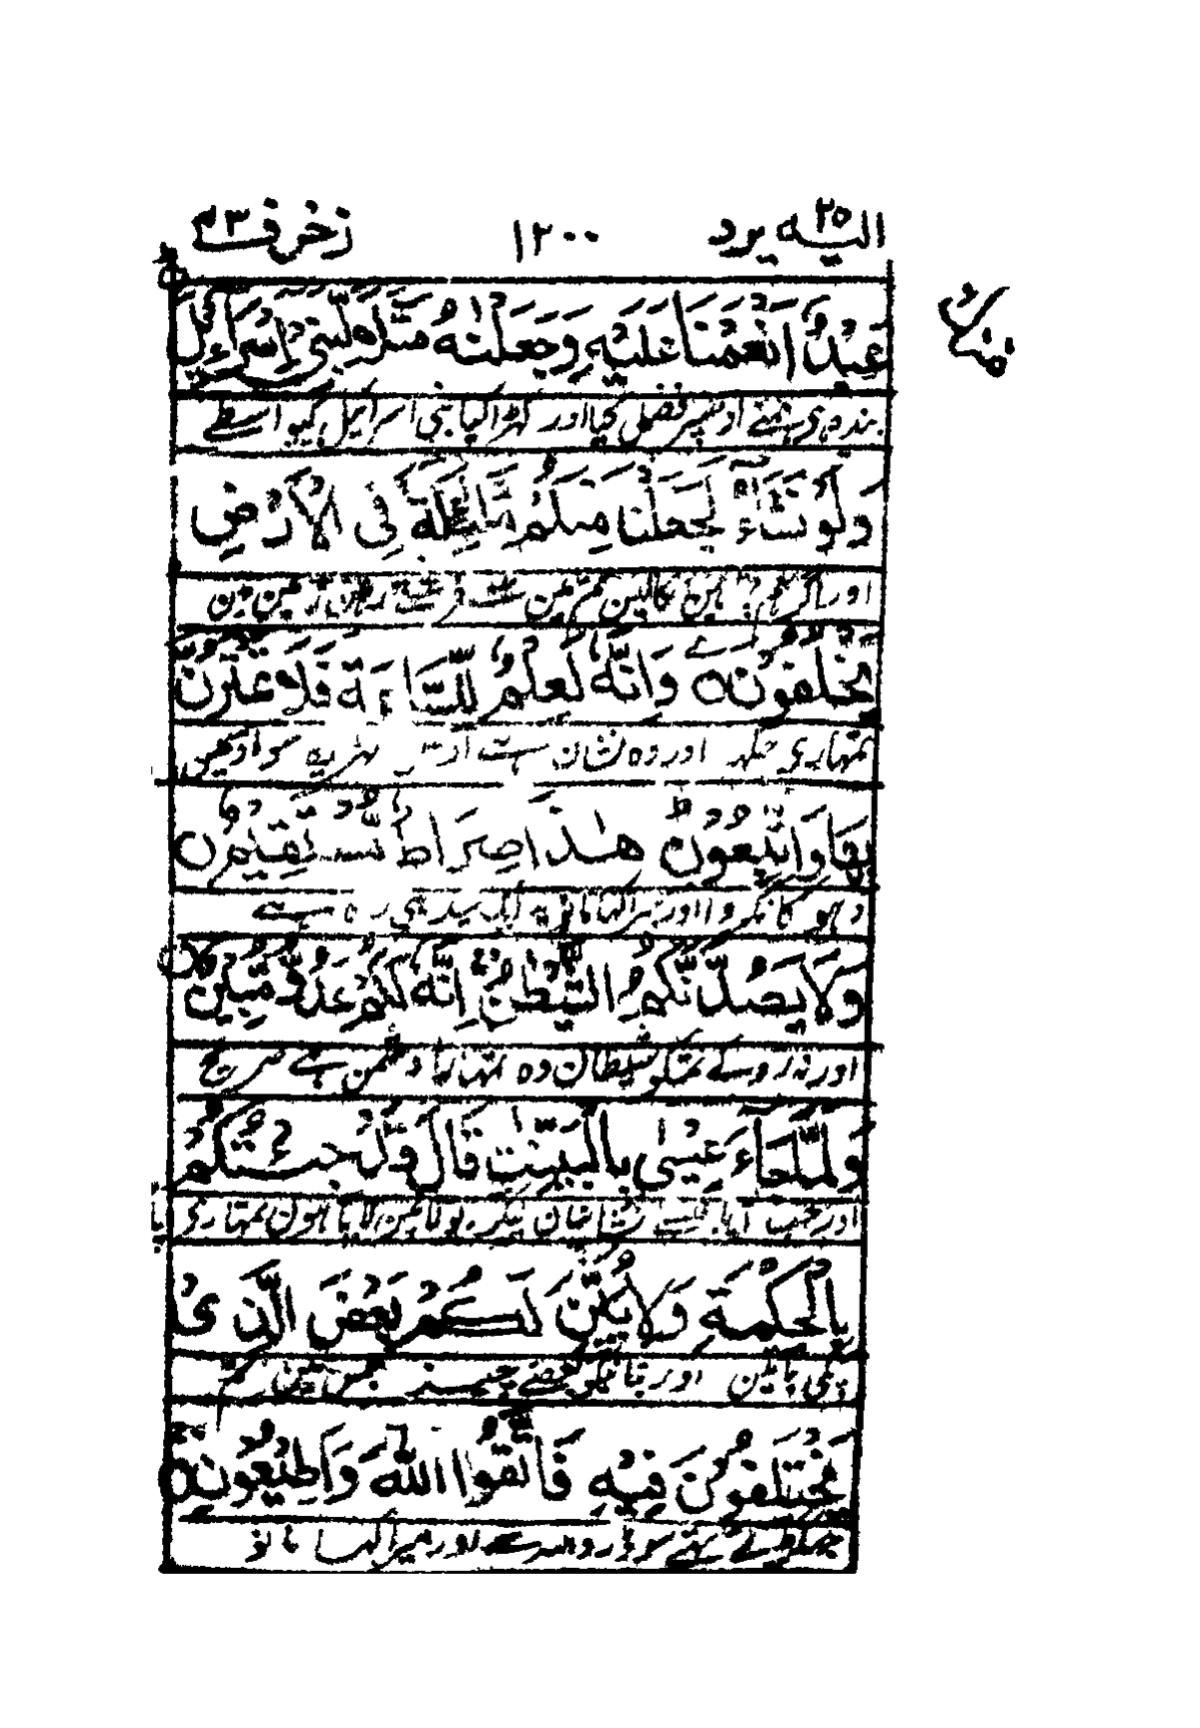 الیه یرد ۲۵ ۱۲۰۰ زخرف ۴۳
عَبْدٌ اَنْعَمْنَا عَلَيْهِ وَجَعَلْنٰهُ مَثَلًا لِّبَنِيْٓ اِسْرَآءِيْلَ
بندہ ہی ہمنے اوسپر فضل کیا اور کھڑا کیا بنی اسرائیل کیواسطے
وَلَوْ نَشَآءُ لَجَعَلْنَا مِنْكُمْ مَّلٰٓئِكَةً فِي الْاَرْضِ
اور اگر ہم چاہین نکالین تم مین سے فرشتے رہین زمین مین
يَخْلُفُوْنَ وَاِنَّهٗ لَعِلْمٌ لِّلسَّاعَةِ فَلَا تَمْتَرُنَّ
تمہاری جگہ اور وہ نشان ہے اوس گھڑیکا سو اوسمین
بِهَا وَاتَّبِعُوْنِ هٰذَا صِرَاطٌ مُّسْتَقِيْمٌ
دھوکا نکرو اور میرا کہا مانو یہ ایک سیدھی راہ ہے
وَلَا يَصُدَّنَّكُمُ الشَّيْطٰنُ اِنَّهٗ لَكُمْ عَدُوٌّ مُّبِيْنٌ
اور نہ روکے تمکو شیطان وہ تمہارا دشمن ہے صریح
وَلَمَّا جَآءَ عِيْسٰى بِالْبَيِّنٰتِ قَالَ قَدْ جِئْتُكُمْ
اور جب آیا عیسے نشانیان لیکر بولا مین لایا ہون تمہاری پاس
بِالْحِكْمَةِ وَلِاُبَيِّنَ لَكُمْ بَعْضَ الَّذِيْ
پکی باتین اور بتانیکو بعضے چیز جس مین تم
تَخْتَلِفُوْنَ فِيْهِ فَاتَّقُوا اللّٰهَ وَاَطِيْعُوْنِ
جھگڑتے تھے سو ڈرو اللہ سے اور میرا کہا مانو